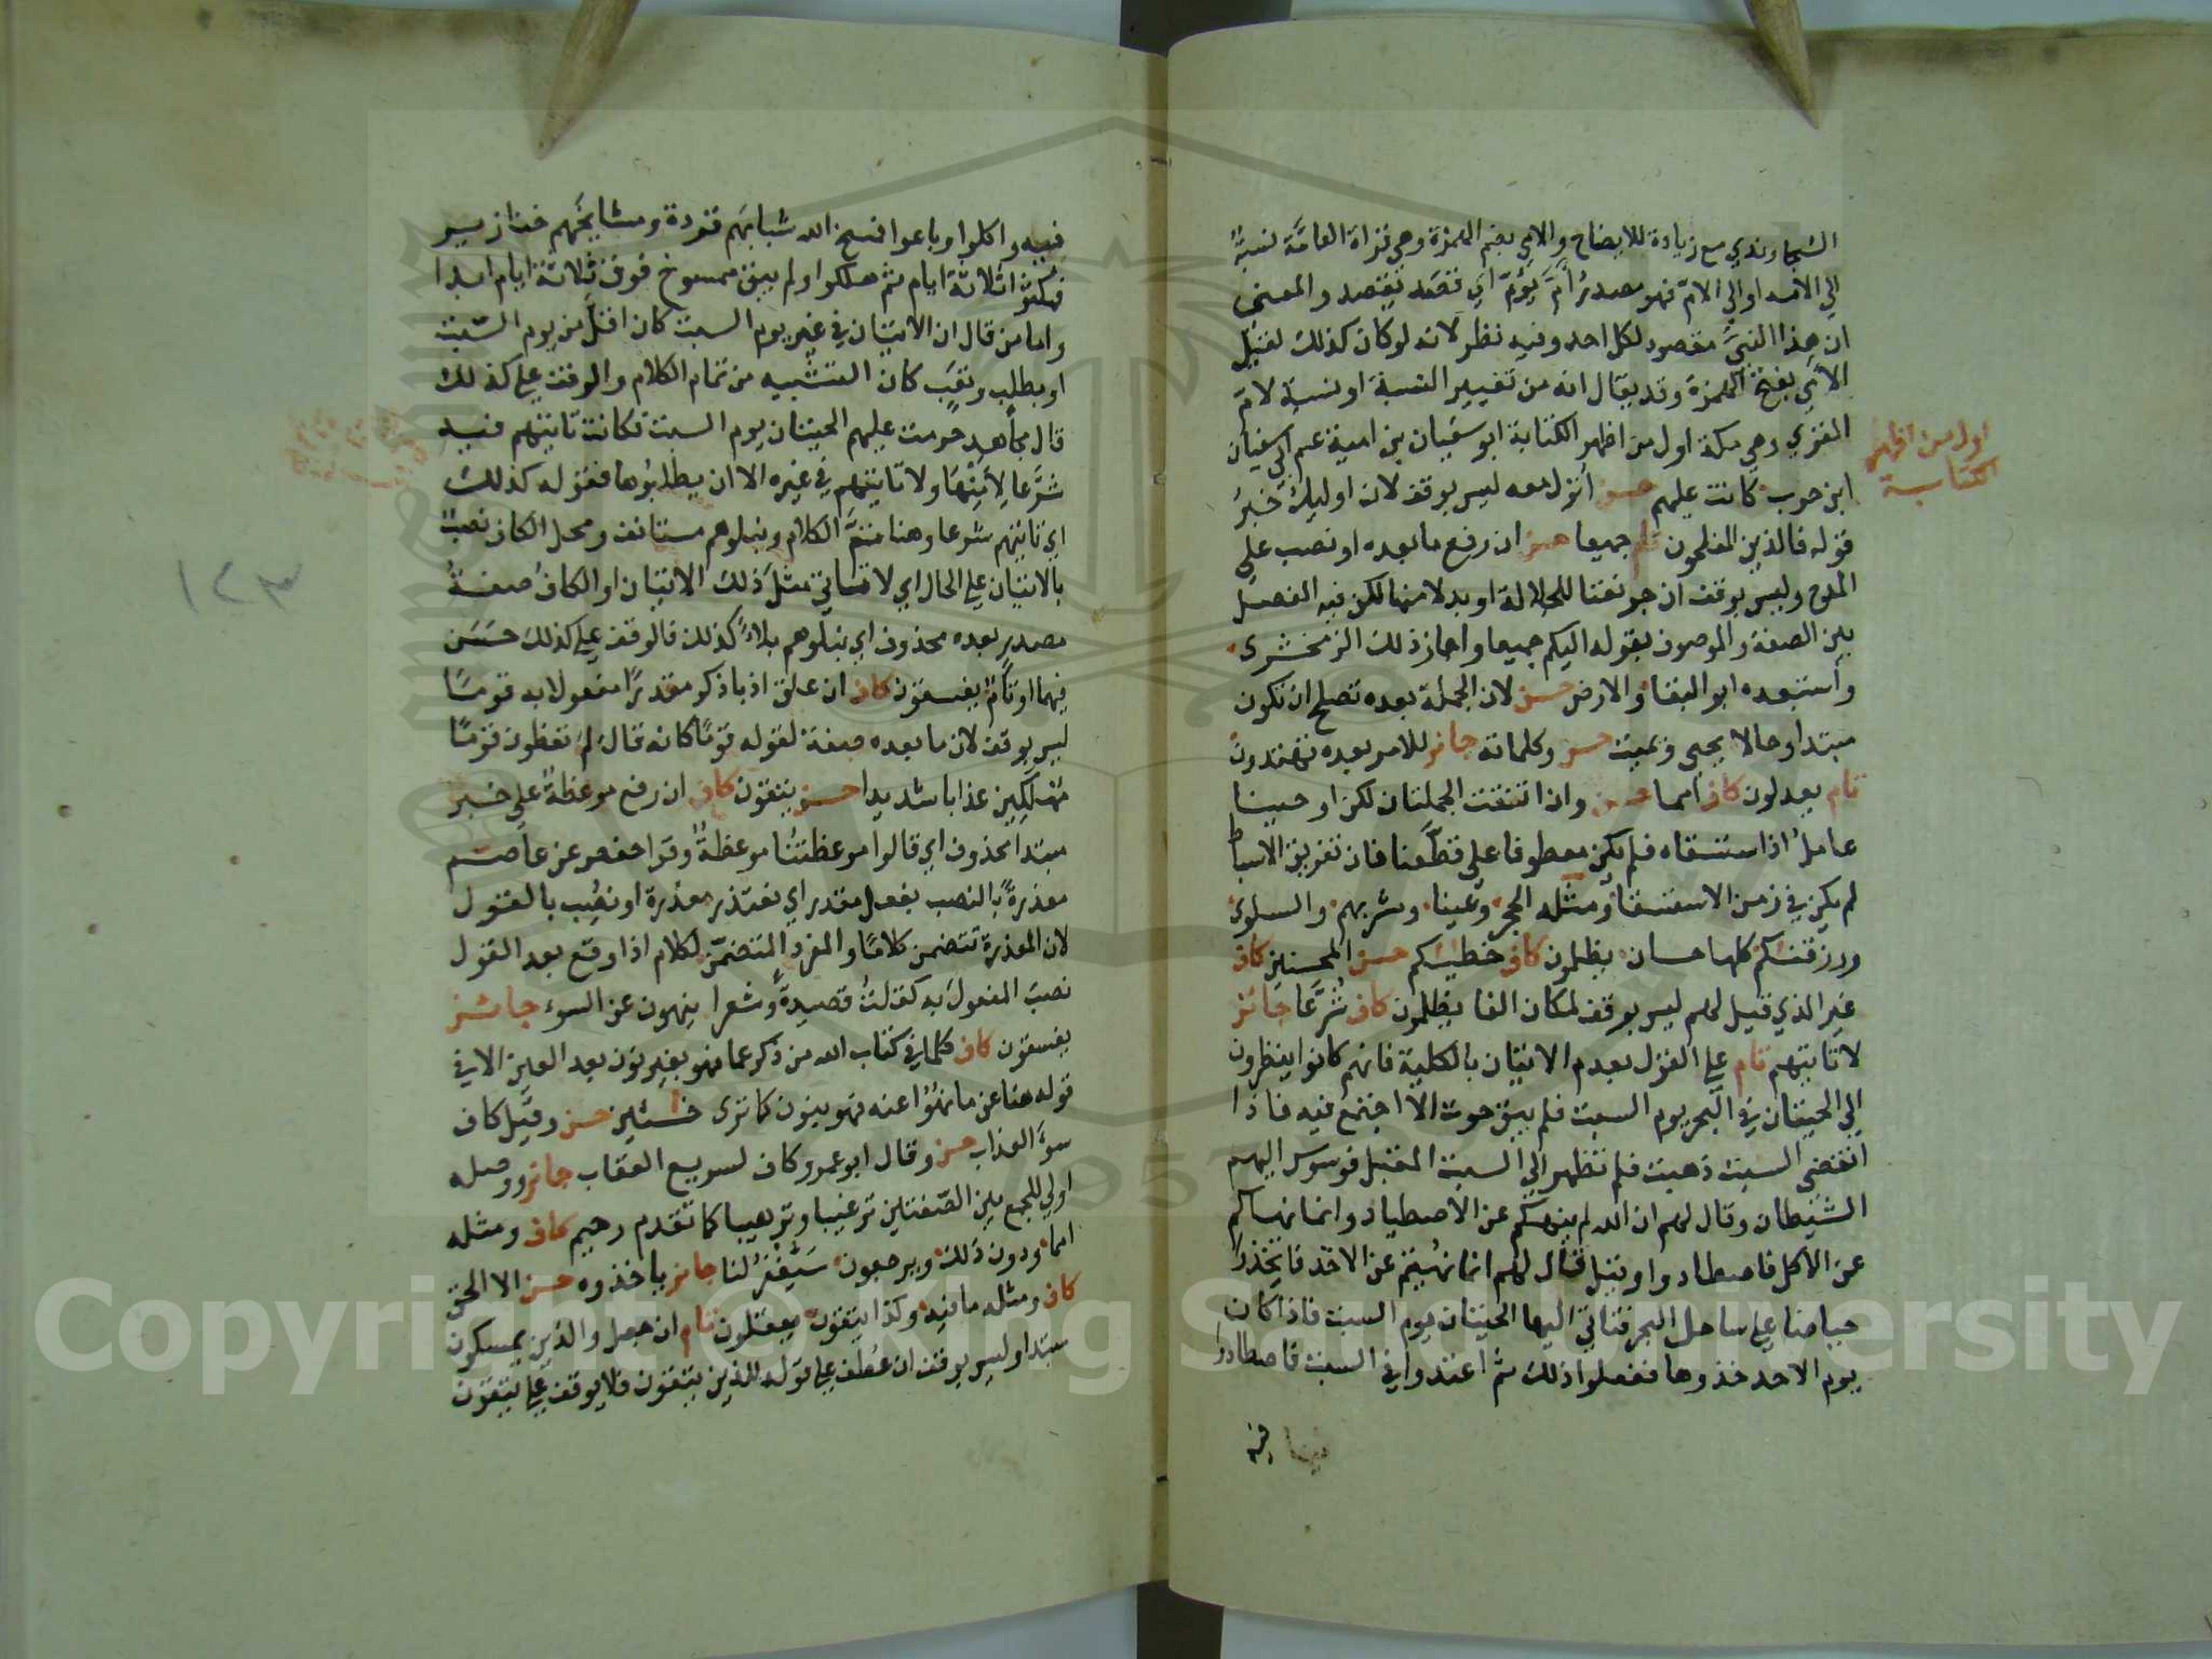 السجاوندي مع زيادة للايضاح والامي بضم الهمزة وهي قراة العامة نسبة
الي الامة او الي الام فهو مصدر أمّ يؤمّ اي قصد يقصد والمعنى
ان هذا النبي مقصود لكل احد وفيه نظر لانه لو كان كذلك لقيل
الأمي بفتح الهمزة وقد يقال انه من تغيير النسبة او نسبة لام
القري وهي مكة اول من اظهر الكتابة ابو سفيان بن امية عم ابي سفيان
ابن حرب كانت عليهم حسن انزل معه ليس بوقف لان اوليك خبر
قوله فالذين المفلحون تام جميعا حسن ان رفع ما بعده او نصب على
المدح وليس بوقف ان جر نعتا للجلالة او بدلا منها لكن فيه الفصل
بين الصفة والموصوف بقوله اليكم جميعا واجاز ذلك الزمخشرى
واستبعده ابو البقا والارض حسن لان الجملة بعده تصلح ان تكون
مبتدا وحالا يحيى ويميت حسن وكلماته جائز للامر بعده تهتدون
تام يعدلون كاف امما حسن وان اتفقت الجملتان لكن اوحينا
عامل اذا ستسقاه فلم يكن معطوفا على قطّعنا فان تفريق الاسباط
لم يكن في زمن الاستسقا ومثله الحجر وعينا ومشربهم والسلوى
ورزقنكم كلها حسان يظلمون كاف خطيئتكم حسن المحسنين كاف
غير الذي قيل لهم ليس بوقف لمكان الفا يظلمون كاف شرّعا جائز
لا تاتيهم تام علي القول بعدم الاتيان بالكلية فانهم كانوا ينظرون
الي الحيتان في البحر يوم السبت فلم يبق حوت الا اجتمع فيه فاذا
انقضى السبت ذهبت فلم تظهر الي السبت المقبل فوسوس اليهم
الشيطان وقال لهم ان الله لم ينهكم عن الاصطياد وانما نهاكم
عن الاكل فاصطادوا وقيل قال لهم انما نهيتم عن الاخذ فاتخذوا
حياضا علي ساحل البحر فتاتي اليها الحيتان يوم السبت فاذا كان
يوم الاحد خذوها ففعلوا ذلك ثم اعتدوا في السبت فاصطادوا
فيه
اول من اظهر
الكتابة
فيه واكلوا وباعوا فمسخ الله شبابهم قردة ومشايخهم خنازير
فمكثوا ثلاثة ايام ثم هلكوا ولم يبق ممسوخ فوق ثلاثة ايام ابدا
واما من قال ان الاتيان في غير يوم السبت كان اقلّ من يوم السبت
او بطلب وتعب كان التشبيه من تمام الكلام والوقف علي كذلك
قال مجاهد حرمت عليهم الحيتان يوم السبت فكانت تاتيهم فيه
شرّعا لأمنها ولا تاتيهم في غيره الا ان يطلبوها فقوله كذلك
اي تاتيهم شرعا وهنا تمّ الكلام ونبلوهم مستانف ومحل الكاف نصب
بالاتيان علي الحال اي لا تاتي مثل ذلك الاتيان او الكاف صفة
مصدر بعده محذوف اي نبلوهم بلاءً كذلك فالوقف علي كذلك حسن
فيهما او تامّ يفسقون كاف ان علق اذ باذكر مقدرًا مفعولا به قومًا
ليس بوقف لان ما بعده صفة لقوله قومًا كانه قال لم تعظون قومًا
مهلكين عذابا شديدا حسن يتقون كاف ان رفع موعظة على خبر
مبتدا محذوف اي قالوا موعظتنا موعظة وقرا حفص عن عاصم
معذرةً بالنصب بفعل مقدر اي نعتذر معذرة او نصب بالقول
لان المعذرة تتضمن كلامًا والمفرد المتضمّن لكلام اذا وقع بعد القول
نصب المفعول به كقلتُ قصيدةً وشعرا ينهون عن السوء جائز
يفسقون كاف كلما في كتاب الله من ذكر عما فهو بغير نون بعد العين الا في
قوله هنا عن ما نهوا عنه فهو بنون كما ترى خسئين حسن وقيل كاف
سوء العذاب حسن وقال ابو عمرو كاف لسريع العقاب جائز ووصله
اولي للجمع بين الصّفتين ترغيبا وترهيبا كما تقدم رحيم كاف ومثله
امما ودون ذلك ويرجعون سيُغفرُ لنا جائز ياخذوه حسن الا الحق
كاف ومثله ما فيه وكذا يتقون يعقلون تام ان جعل والذين يمسكون
مبتدا وليس بوقف ان عُطف علي قوله للذين يتقون فلا يوقف علي يتقون
١٢٣
Copyright © King Saud University